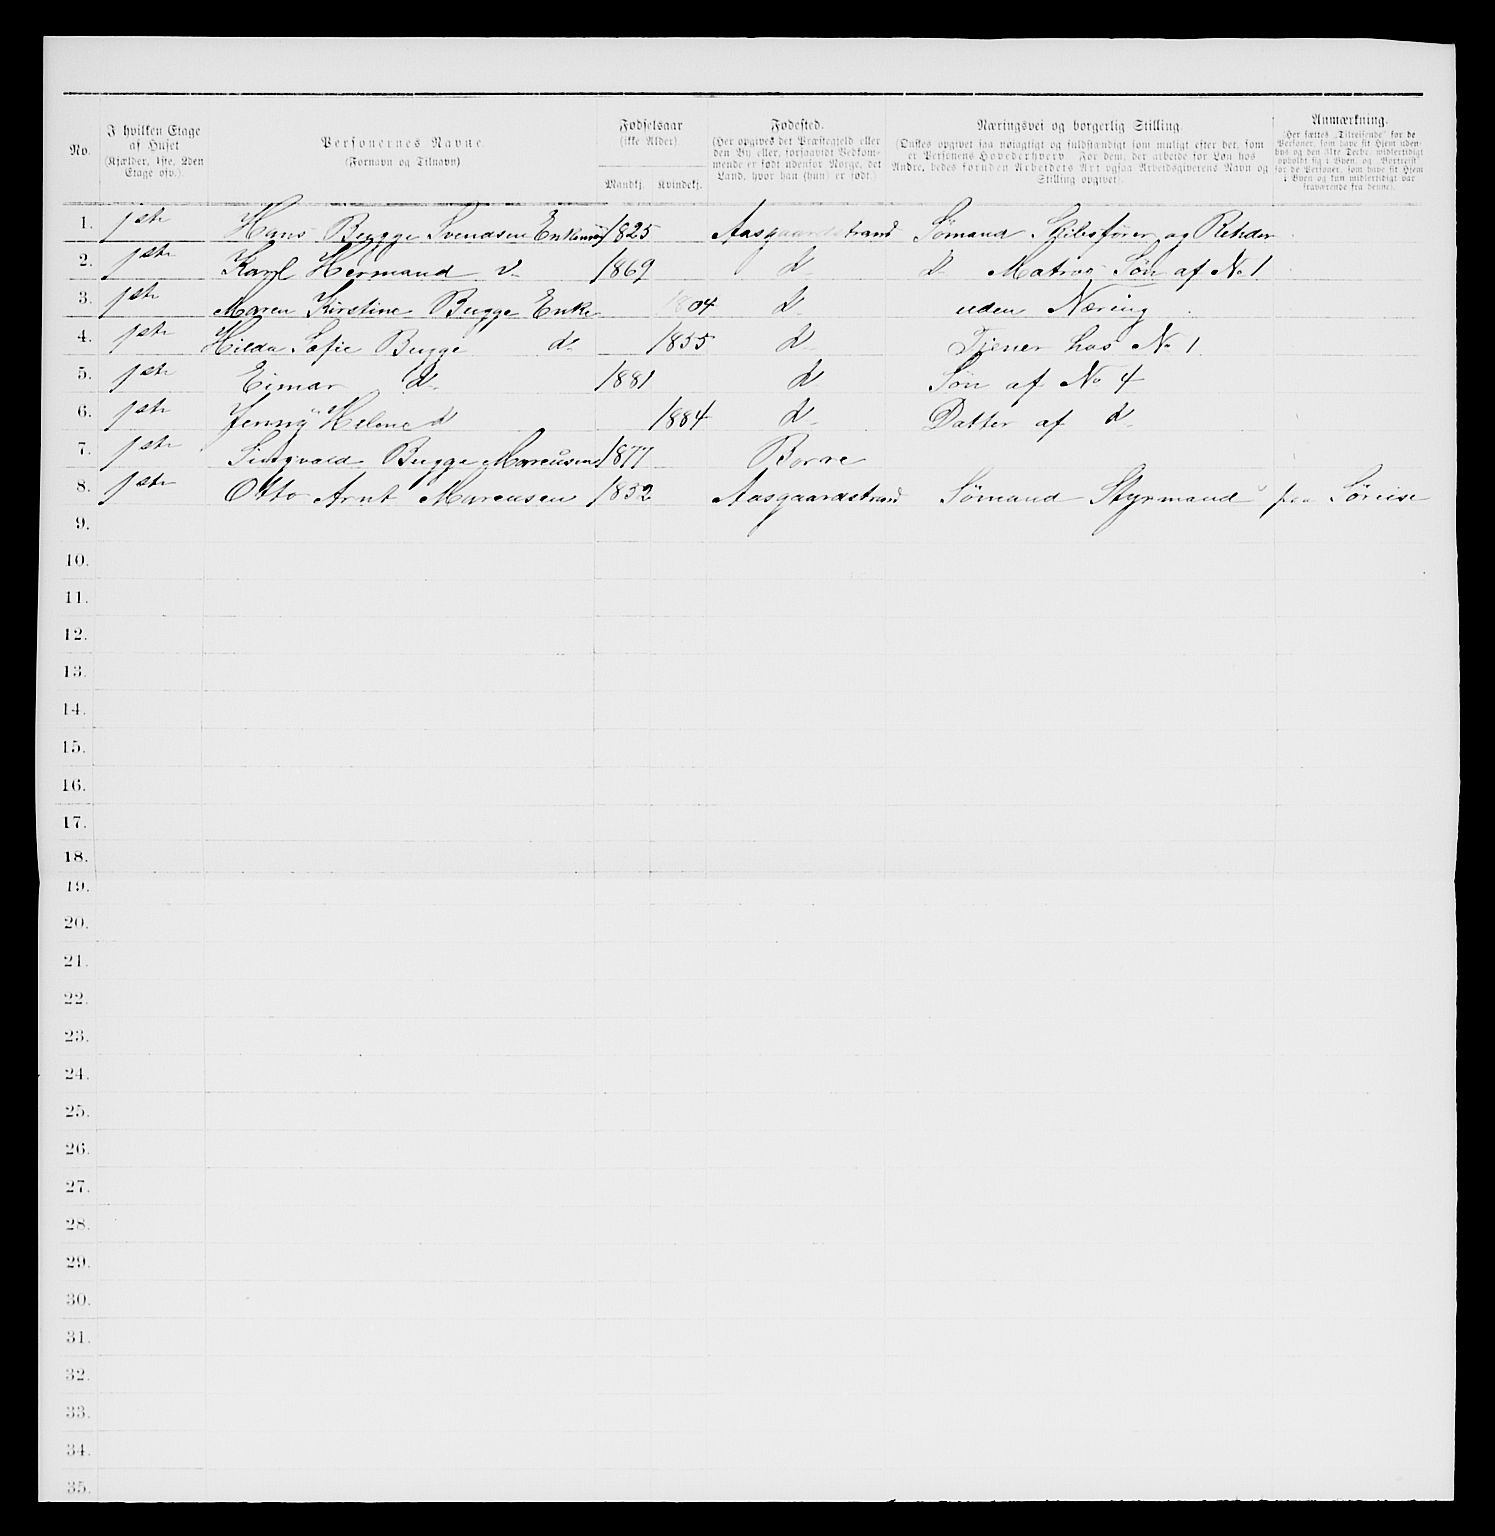 No.
I hvilken Etage af Huset (Kjælder, 1ste, 2den Etage osv.).
Personernes Navne. (Fornavn og Tilnavn)
Fødselsaar (ikke Alder). Mandkj. Kvindekj.
Fødested. (Her opgives det Præstegjeld eller den By eller, forsaavidt Vedkommende er født udenfor Norge, det Land, hvor han (hun) er født.)
Næringsvei og borgerlig Stilling. (Ønskes opgivet saa nøiagtigt og fuldstændigt som muligt efter det, som er Personens Hovederhverv. For dem, der arbeide for Løn hos Andre, bedes foruden Arbeidets Art ogsaa Arbeidsgiverens Navn og Stilling opgivet).
Anmærkning. (Her sættes „Tilreisende" for de Personer, som have sit Hjem udenbys og den 31te Decbr. midlertidigt opholdt sig i Byen, og „Bortreist" for de Personer, som have sit Hjem i Byen og kun midlertidigt var fraværende fra denne).
1. 1ste Hans Bugge Svendsen Enkemd 1825 Aasgaardstrand Sømand Skibsfører og Rehder
2. 1ste Karl Hermand d. 1869 d. d. Matros Søn af No 1
3. 1ste Maren Kirstine Bugge Enke 1804 d. uden Næring
4. 1ste Hilda Sofie Bugge d. 1855 d. Tjener hos No 1
5. 1ste Eimar d. 1881 d. Søn af No 4
6. 1ste Jenny Helene d. 1884 d. Datter af d.
7. 1ste Sigvald Bugge Marcusen 1877 Borre
8. 1ste Otto Arnt Marcusen 1852 Aasgaardstrand Sømand Styrmand paa Søreise
9.
10.
11.
12.
13.
14.
15.
16.
17.
18.
19.
20.
21.
22.
23.
24.
25.
26.
27.
28.
29.
30.
31.
32.
33.
34.
35.